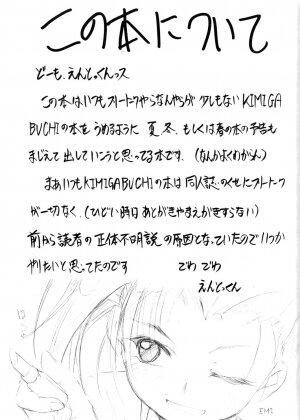 この本について
どーも、えんとっくんっス
この本はいつもフリートークやらなんやらが少しもないKIMIGA
BUCHIの本をうめるように夏、冬、もしくは春の本の予告も
まじえて出していこうと思ってる本です、(なんかよくわからん)
まあいつもKIMIGABUCHIの本は同人誌のくせにフリートークが
一切なく、(ひどい時はあとがきやまえがきすらない)
前から読者の正体不明説の原因となっていたのでいつか
やりたいと思ってたのです でわ でわ
えんとっくん
EMI